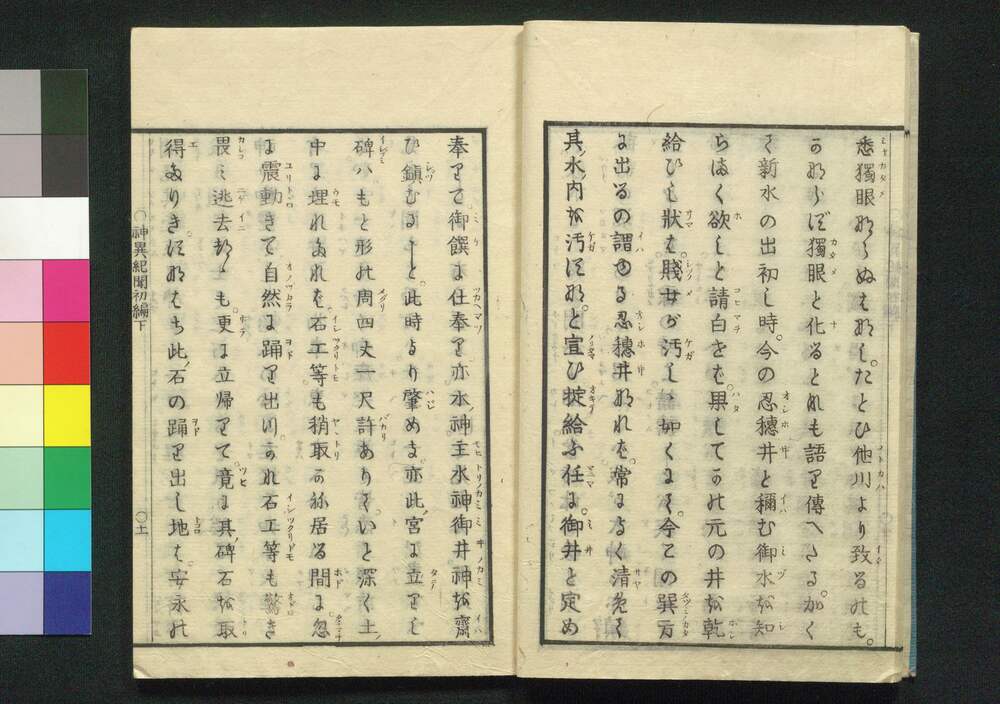 悉獨眼ならぬはなし。たとひ他川より致るにも。
かならず獨眼と化るとなも語り傳へたる。かく
て新水の出初し時。今の忍穗井と稱む御水を知
らまく欲しと請白せば。果してかの元の井を乾
給ひし狀は。賤女が汚しゝ如くにて。今この巽方
に出るの謂ゆる忍穗井なれば。常によく清めて
其水内を汚すな。と宣ひ掟給ふ任に。御井と定め
奉りて御饌に仕奉り。亦水神主水神御井神を齋
ひ鎭むるなり。と。此時より肇めき。亦此宮に立りし
碑ハもと形の周四丈一尺許ありて。いと深く土
中に埋れたれを。石工等も稍取かね居る間に。忽
に震動きて自然に踊り出つ。かれ石工等も驚き
畏み逃去けるも。更に立帰りて竟に其碑石を取
得たりき。すなはち此石の踊り出し地は。安永の
○神異紀聞初編下
○十一